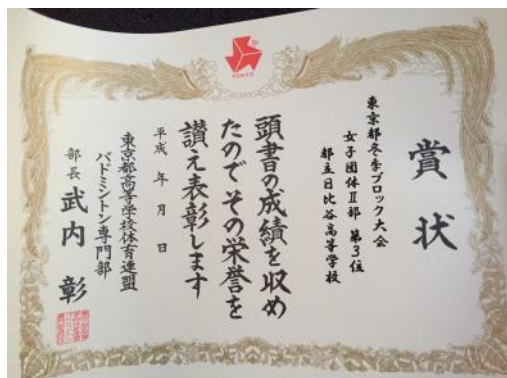 賞状
東京都冬季ブロック大会
女子団体Ⅱ部 第3位
都立日比谷高等学校
頭書の成績を収め
たのでその栄誉を
讃え表彰します
平成 年 月 日
東京都高等学校体育連盟
バドミントン専門部
部長 武内 彰
TOKYO